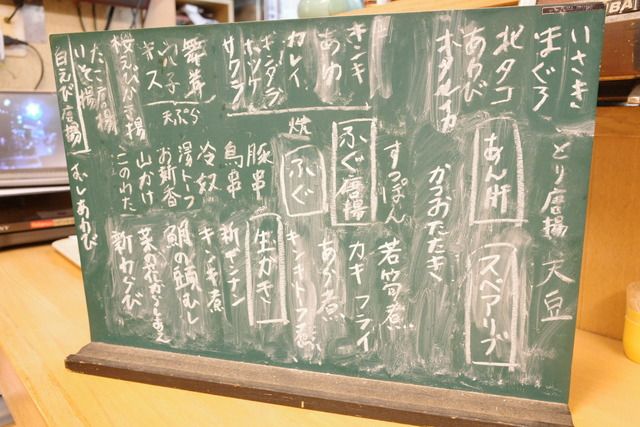 いさき
まぐろ
北タコ
あわび
ホタルイカ
キンキ
あゆ
カレイ
ギンダラ
ホッケ
サワラ
焼
舞茸
穴子
キス
天ぷら
桜えびかき揚
たこ唐揚
いそ揚
白えび唐揚
とり唐揚
天豆
あん肝
スペアリブ
かつおたたき
すっぽん
若筍煮
ふぐ唐揚
カキフライ
ふぐ
あら煮
キンキトーフ煮
豚串
鳥串
生がき
新ギンナン
冷奴
湯トーフ
お新香
山かけ
このわた
キンキ煮
鯛の頭むし
菜の花からしあえ
新わらび
むしあわび